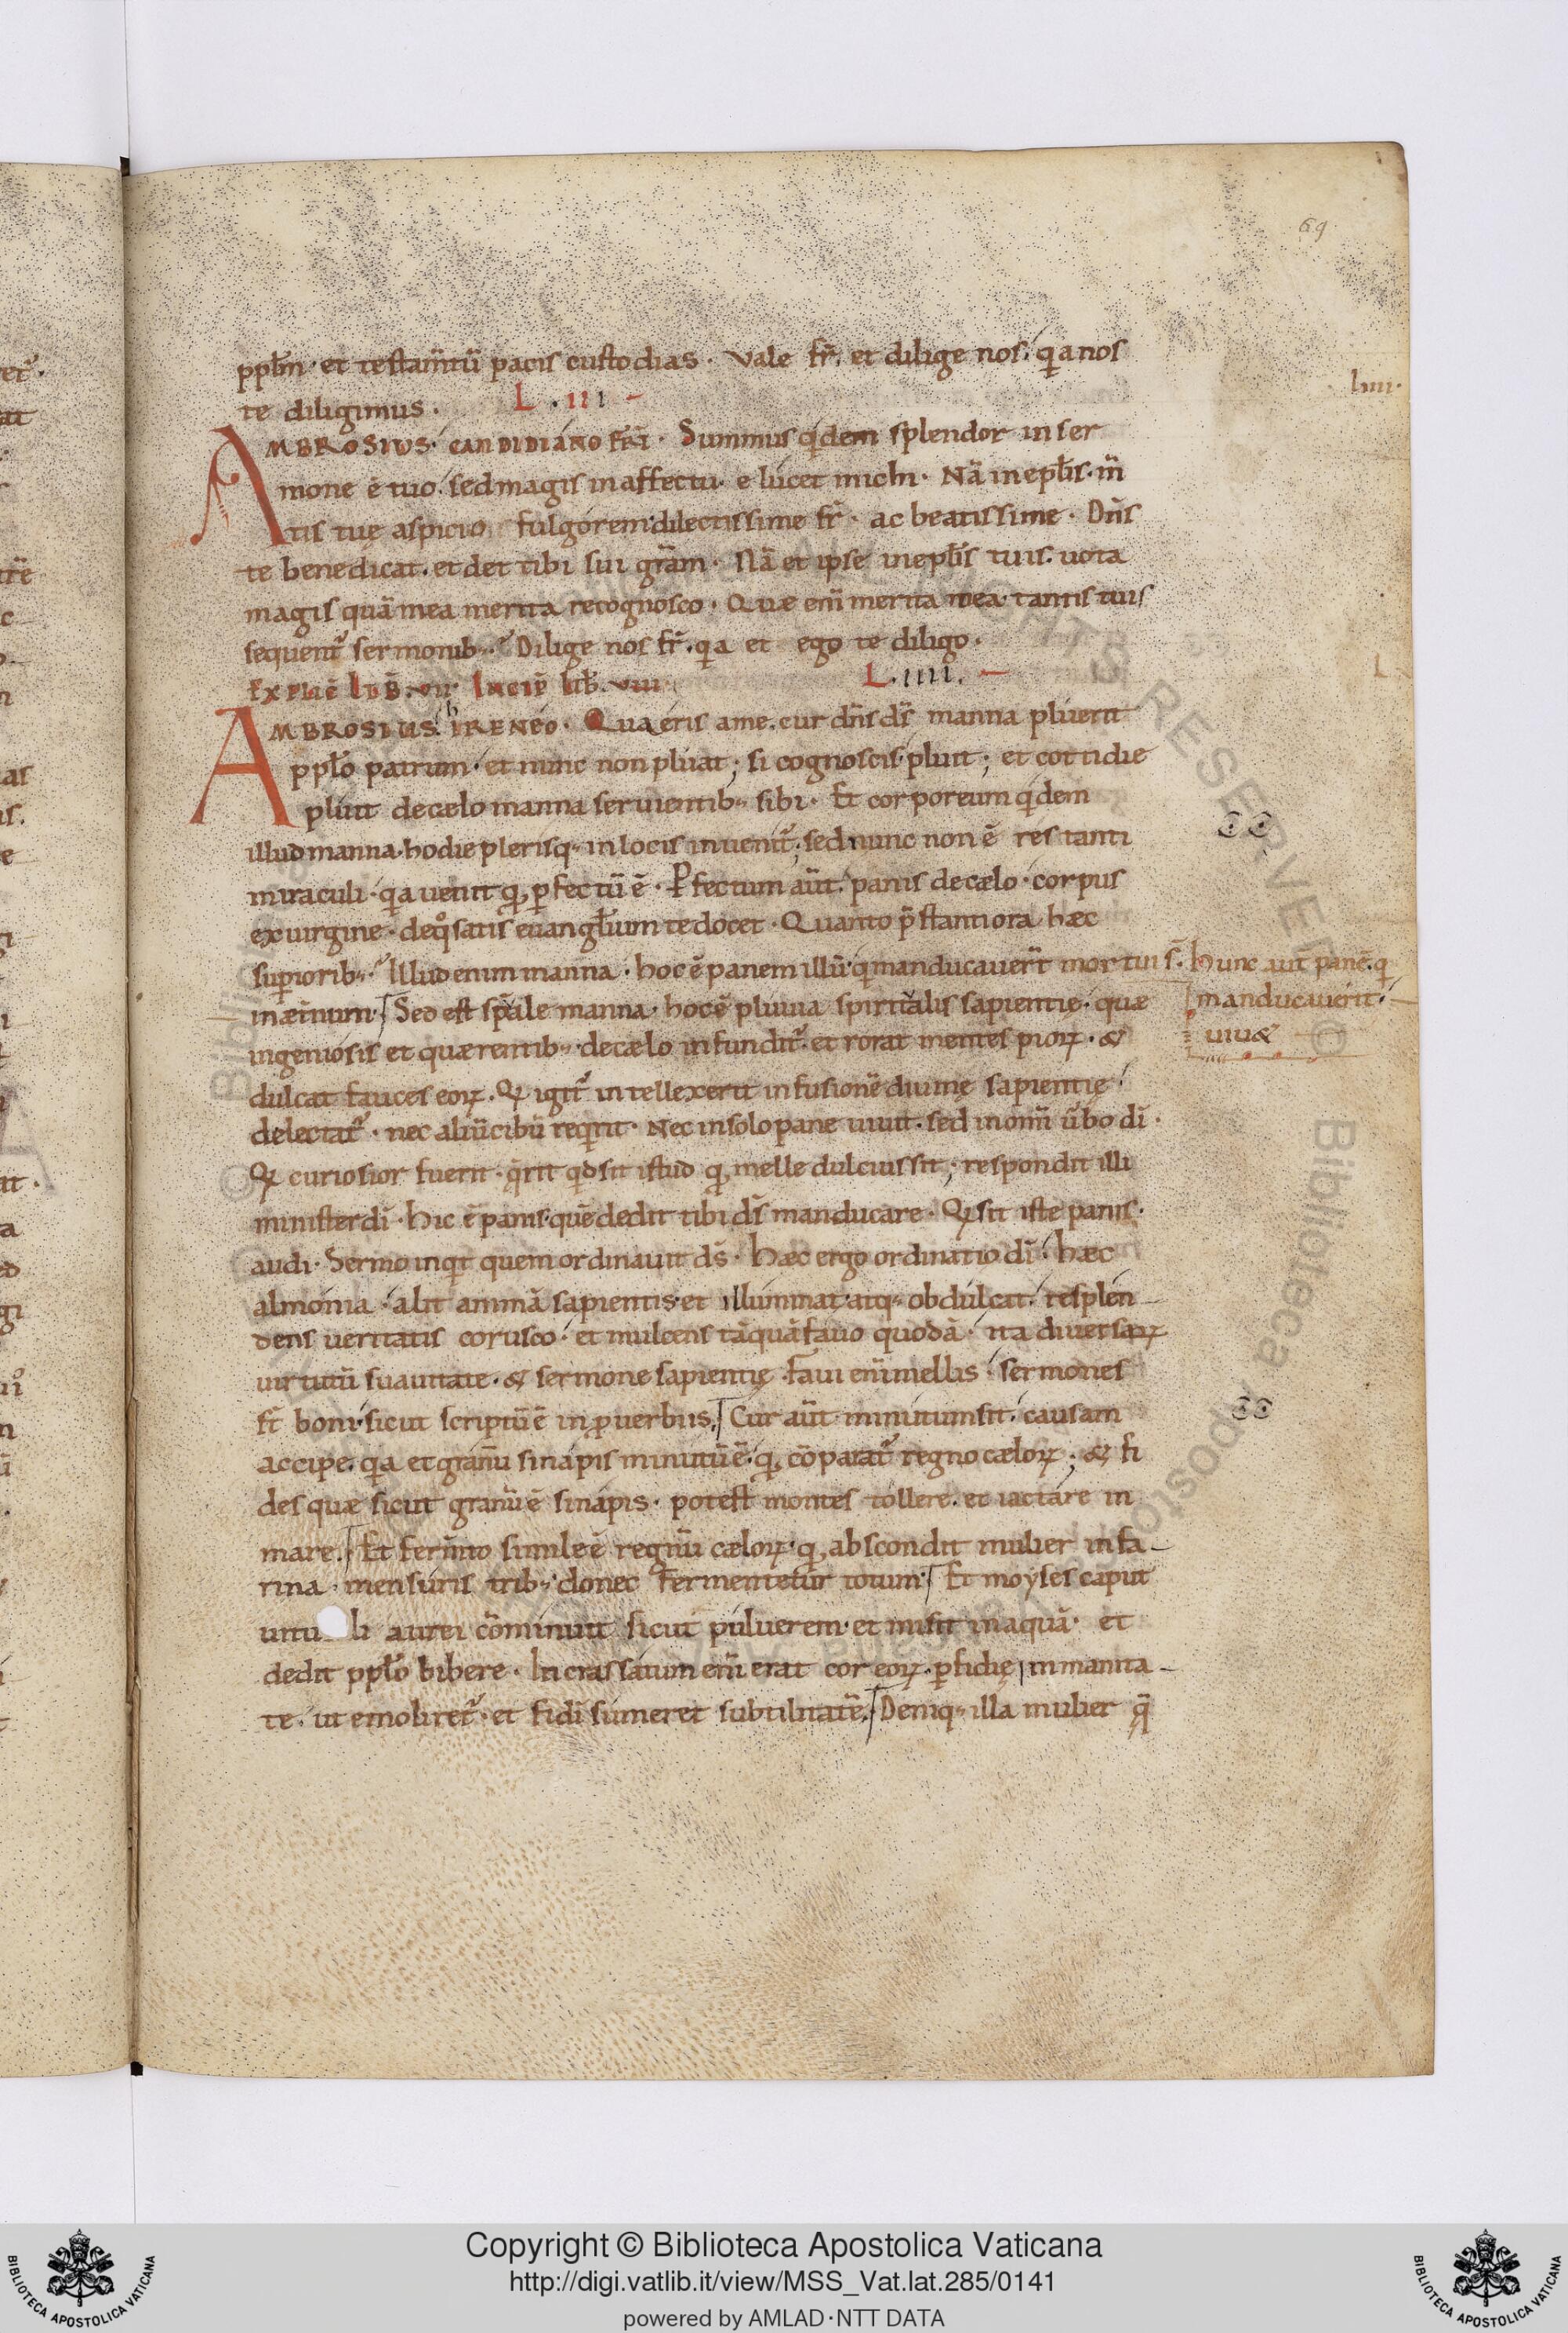 69
pplm̄· et testam̄tū pacis custodias· Vale fr̄· et dilige nos· qa nos
te diligimus· L·III
liiii·
AMBROSIUS· CANDIDIANO FRĪ· Summus qdem splendor in ser
mone ē tuo· sed magis in affectu· e lucet michi· Nā in epl̄is· m̄
tis tuę aspicio fulgorem· dilectissime fr̄· ac beatissime· Dn̄s
te benedicat· et det tibi sui grām· Nā et ipse in epl̄is tuis· uota
magis quā mea merita recognosco· Quae enī merita mea· tantis tuis
sequent᷒ sermonib·· Dilige nos fr̄· qa et ego te diligo·
EXPLIC̄ LIB̄· VII· INCIP̄ LIB̄· VIII L·IIII·
AMBROSIUS· hIRENEO· Quaeris a me· cur dn̄s ds̄ manna pluerit
pplo patrum· et nunc non pluat; si cognoscis· pluit; et cottidie
pluit de caelo manna seruientib·· sibi· Et corporeum qdem
illud manna· hodie plerisq·· in locis inuenit᷒; sed nunc non ē res tanti
miraculi· qa uenit qꝫ ꝑfectū ē· Ꝑfectum aūt· panis de caelo· corpus
ex uirgine· de qo satis euanglium te docet· Quanto p̄stantiora haec
supiorib·· Illud enim manna· hoc ē panem illū· q manducauer̄t mortui s̄· Hunc aut panē· q
in aet̄num· Sed est sp̄ale manna· hoc ē pluuia spiritalis sapientię· quae
manducauerit·
ingeniosis et quaerentib·· de caelo infundit᷒· et rorat mentes pioꝝ· &
uiu&
dulcat fauces eoꝝ· Q igit᷒ intellexerit infusionē diuinę sapientię·
delectat᷒· nec aliū cibū reqrit· Nec in solo pane uiuit· sed in om̄i ūbo dī·
Q curiosior fuerit· qrit qd sit istud qꝫ melle dulcius sit; respondit illi
minister dī· Hic ē panis· quē dedit tibi ds̄ manducare· Q sit iste panis·
audi· Sermo inqt quem ordinauit ds̄· Haec ergo ordinatio dī· haec
almonia· alit animā sapientis· et illuminat· atq·· obdulcat· resplen
dens ueritatis corusco· et mulcens tāquā fauo quodā· ita diuersaꝝ
uirtutū suauitate· & sermone sapientię· Faui enī mellis· sermones
st̄ boni· sicut scriptū ē in ꝓuerbiis· Cur aūt minutum sit· causam
accipe· qa et granū sinapis minutū ē· qꝫ cōparat᷒ regno caeloꝝ; & fi
des quae sicut granū ē sinapis· potest montes tollere· et iactare in
mare· Et ferm̄to simile ē regnū caeloꝝ· qꝫ abscondit mulier in fa
rina· mensuris trib·· donec fermentetur totum· Et moyses caput
uitu li aurei cōminuit sicut puluerem· et misit in aquā· et
dedit pplo bibere· Incrassatum enī erat cor eoꝝ· ꝑfidię inmanita
te· ut emoliret᷒· et fidī sumeret subtilitatē· Deniq·· illa mulier q̄
Copyright © Biblioteca Apostolica Vaticana
http://digi.vatlib.it/view/MSS_Vat.lat.285/0141
powered by AMLAD·NTT DATA
BIBLIOTECA APOSTOLICA VATICANA
BIBLIOTECA APOSTOLICA VATICANA